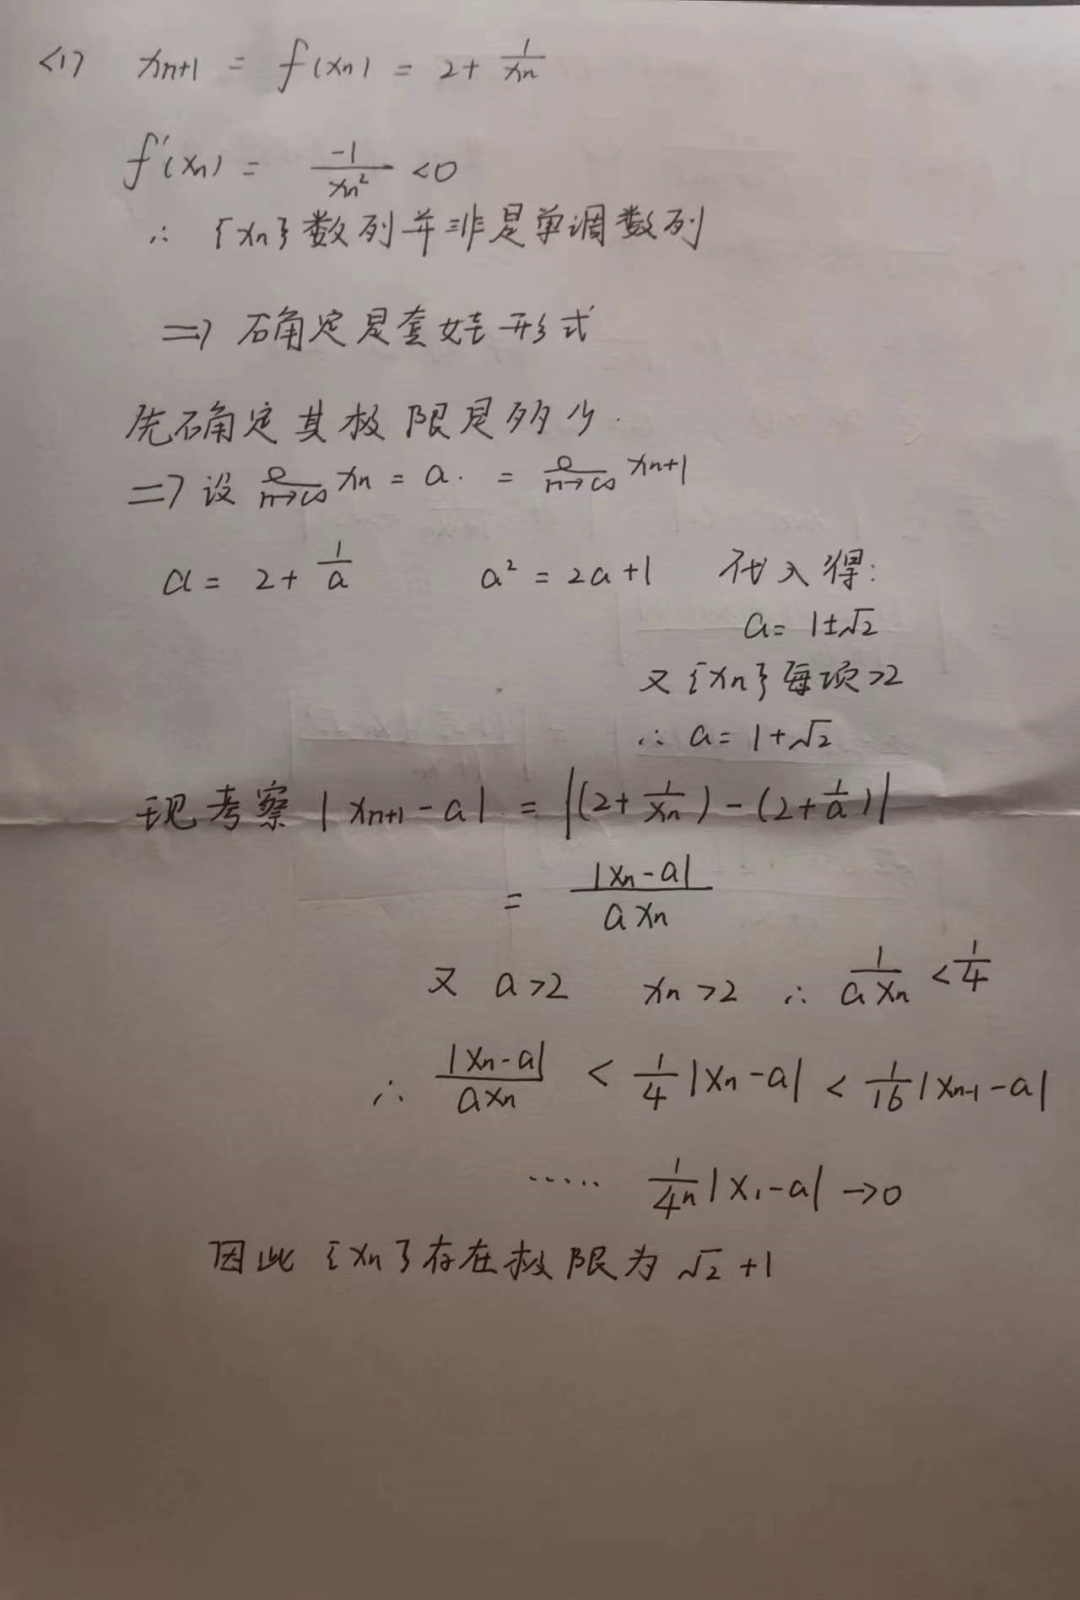 <1> xn+1 = f(xn) = 2+ 1/xn
f'(xn) = -1/xn² <0
∴ {xn}数列并非是单调数列
=> 确定是套娃形式
先确定其极限是多少.
=> 设 n→∞ xn = a. = n→∞ xn+1
a = 2+ 1/a a² = 2a+1 代入得:
a= 1±√2
又{xn}每项>2
∴ a= 1+√2
现考察 |xn+1-a| = |(2+ 1/xn)-(2+ 1/a)|
= |xn-a|/axn
又 a>2 xn>2 ∴ 1/axn < 1/4
∴ |xn-a|/axn < 1/4 |xn-a| < 1/16 |xn-1-a|
..... 1/4ⁿ |x₁-a| →0
因此{xn}存在极限为 √2 +1